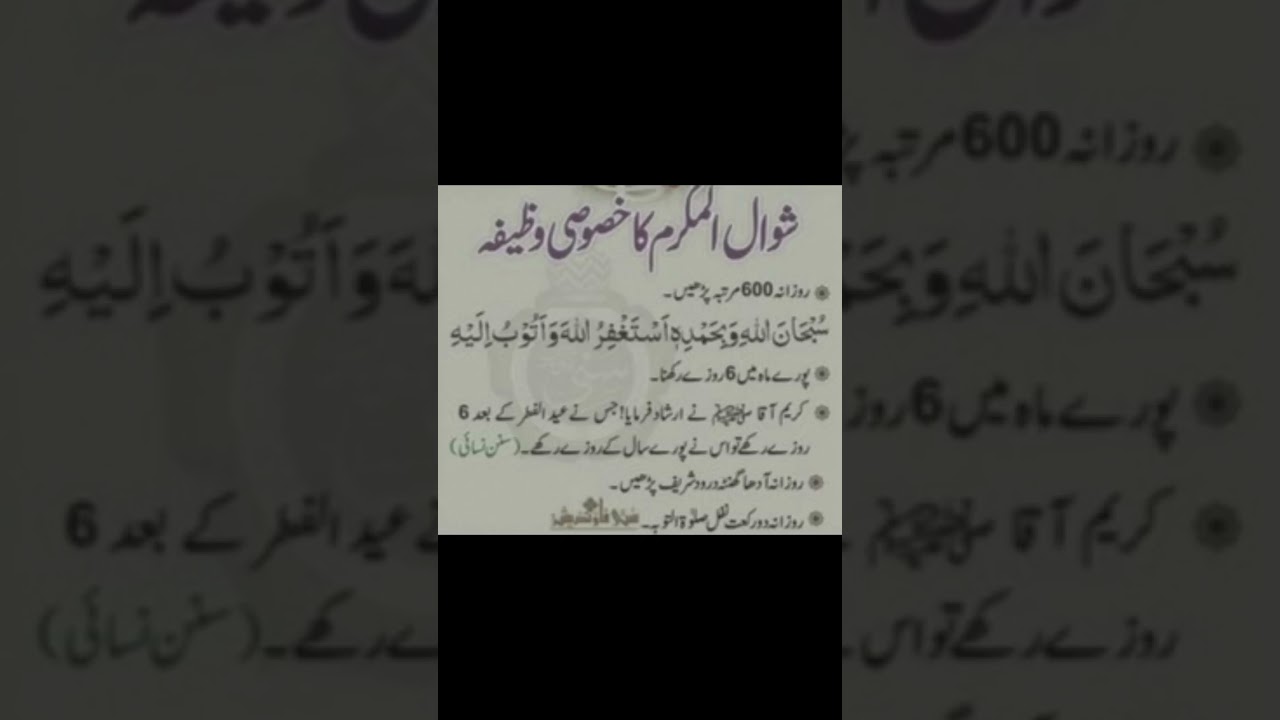 شوال المکرم کا خصوصی وظیفہ
روزانہ 600 مرتبہ پڑھیں۔
سُبْحَانَ اللهِ وَبِحَمْدِهٖ اَسْتَغْفِرُ اللهَ وَاَتُوْبُ اِلَيْهِ
پورے ماہ میں 6 روزے رکھنا۔
کریم آقا ﷺ نے ارشاد فرمایا! جس نے عید الفطر کے بعد 6
روزے رکھے تو اس نے پورے سال کے روزے رکھے۔ (سنن نسائی)
روزانہ آدھا گھنٹہ درود شریف پڑھیں۔
روزانہ دو رکعت نفل صلوٰۃ التوبہ۔